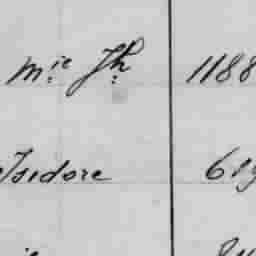 Mie Jh 1188
Isidore 619